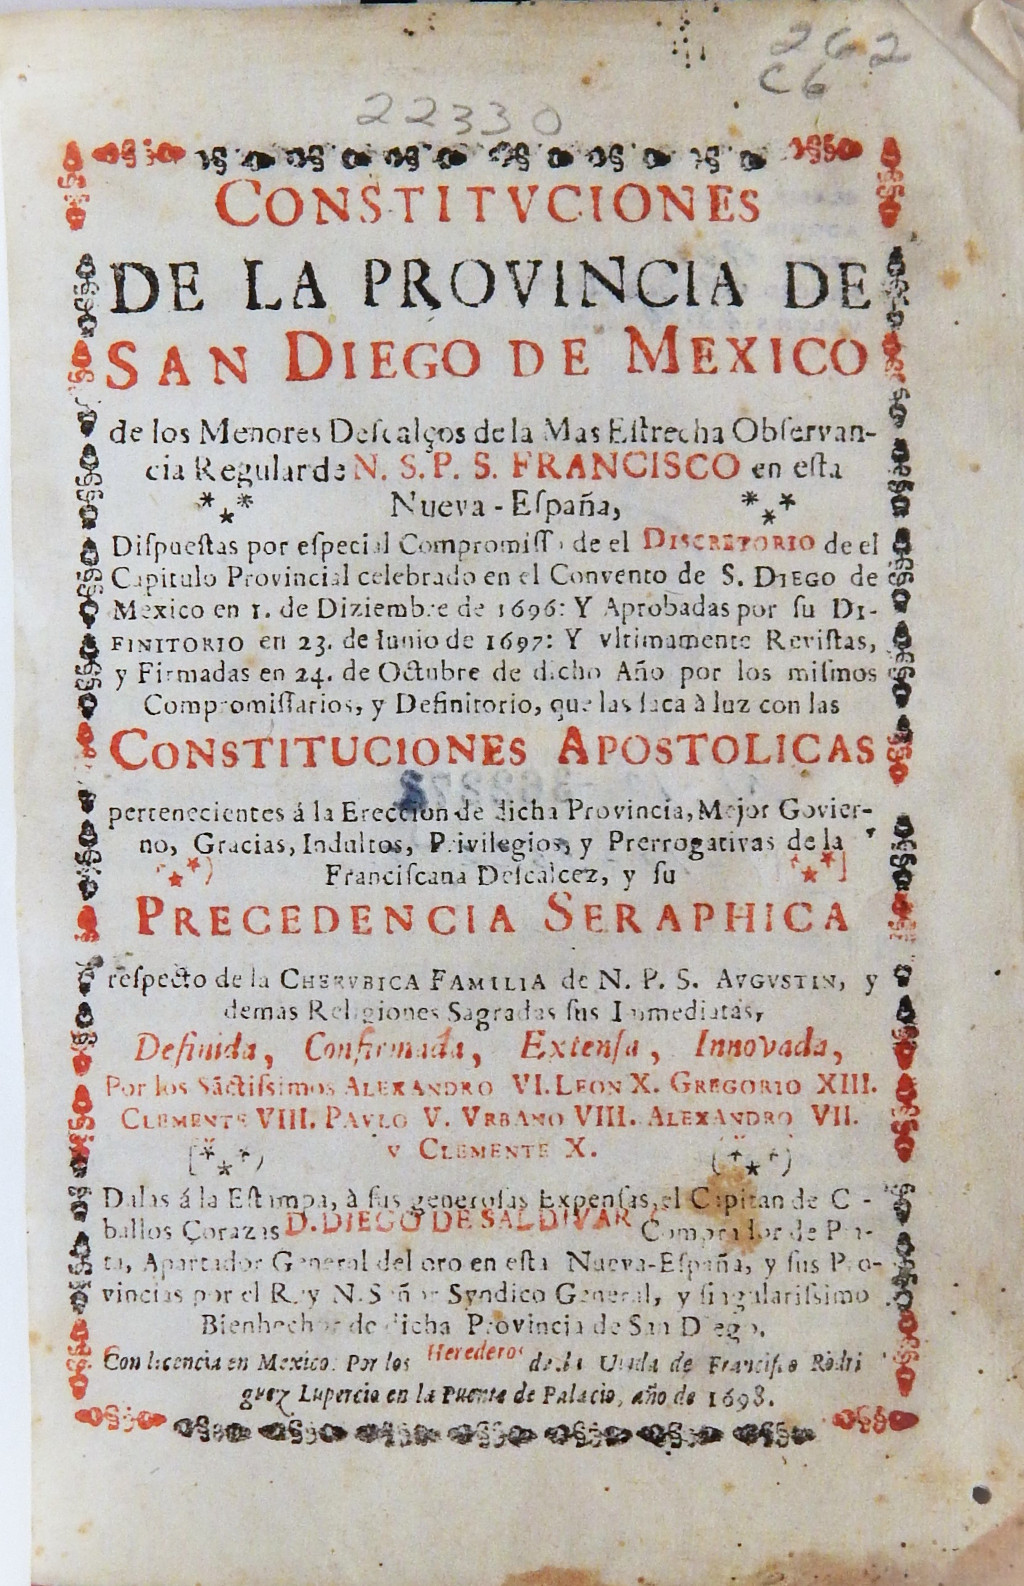 262
C6
22330
CONSTITVCIONES
DE LA PROVINCIA DE
SAN DIEGO DE MEXICO
de los Menores Deſcalços de la Mas Eſtrecha Obſervan-
cia Regular de N. S. P. S. FRANCISCO en eſta
Nueva-Eſpaña,
Diſpueſtas por eſpecial Compromiſſo de el DISCRETORIO de el
Capitulo Provincial celebrado en el Convento de S. DIEGO de
Mexico en 1. de Diziembre de 1696: Y Aprobadas por ſu DI-
FINITORIO en 23. de Iunio de 1697: Y vltimamente Reviſtas,
y Firmadas en 24. de Octubre de dicho Año por los miſmos
Compromiſſarios, y Definitorio, que las ſaca à luz con las
CONSTITUCIONES APOSTOLICAS
pertenecientes á la Ereccion de dicha Provincia, Mejor Govier-
no, Gracias, Indultos, Privilegios, y Prerrogativas de la
Franciſcana Deſcalcez, y ſu
PRECEDENCIA SERAPHICA
reſpecto de la CHERVBICA FAMILIA de N. P. S. AVGVSTIN, y
demàs Religiones Sagradas ſus Inmediatas,
Definida, Confirmada, Extenſa, Innovada,
Por los Sãctiſsimos ALEXANDRO VI. LEON X. GREGORIO XIII.
CLEMENTE VIII. PAVLO V. VRBANO VIII. ALEXANDRO VII.
y CLEMENTE X.
Dalas á la Eſtampa, à ſus generoſas Expenſas, el Capitan de C -
ballos Corazas D. DIEGO DE SALDIVAR Comprador de Pla-
ta, Apartador General del oro en eſta Nueva-Eſpaña, y ſus Pro-
vincias por el Rey N. Señor Syndico General, y ſingulariſsimo
Bienhechor de dicha Provincia de San Diego.
Con licencia en Mexico: Por los Herederos de la Viuda de Franciſco Rodri
guez Lupercio en la Puente de Palacio, año de 1698.